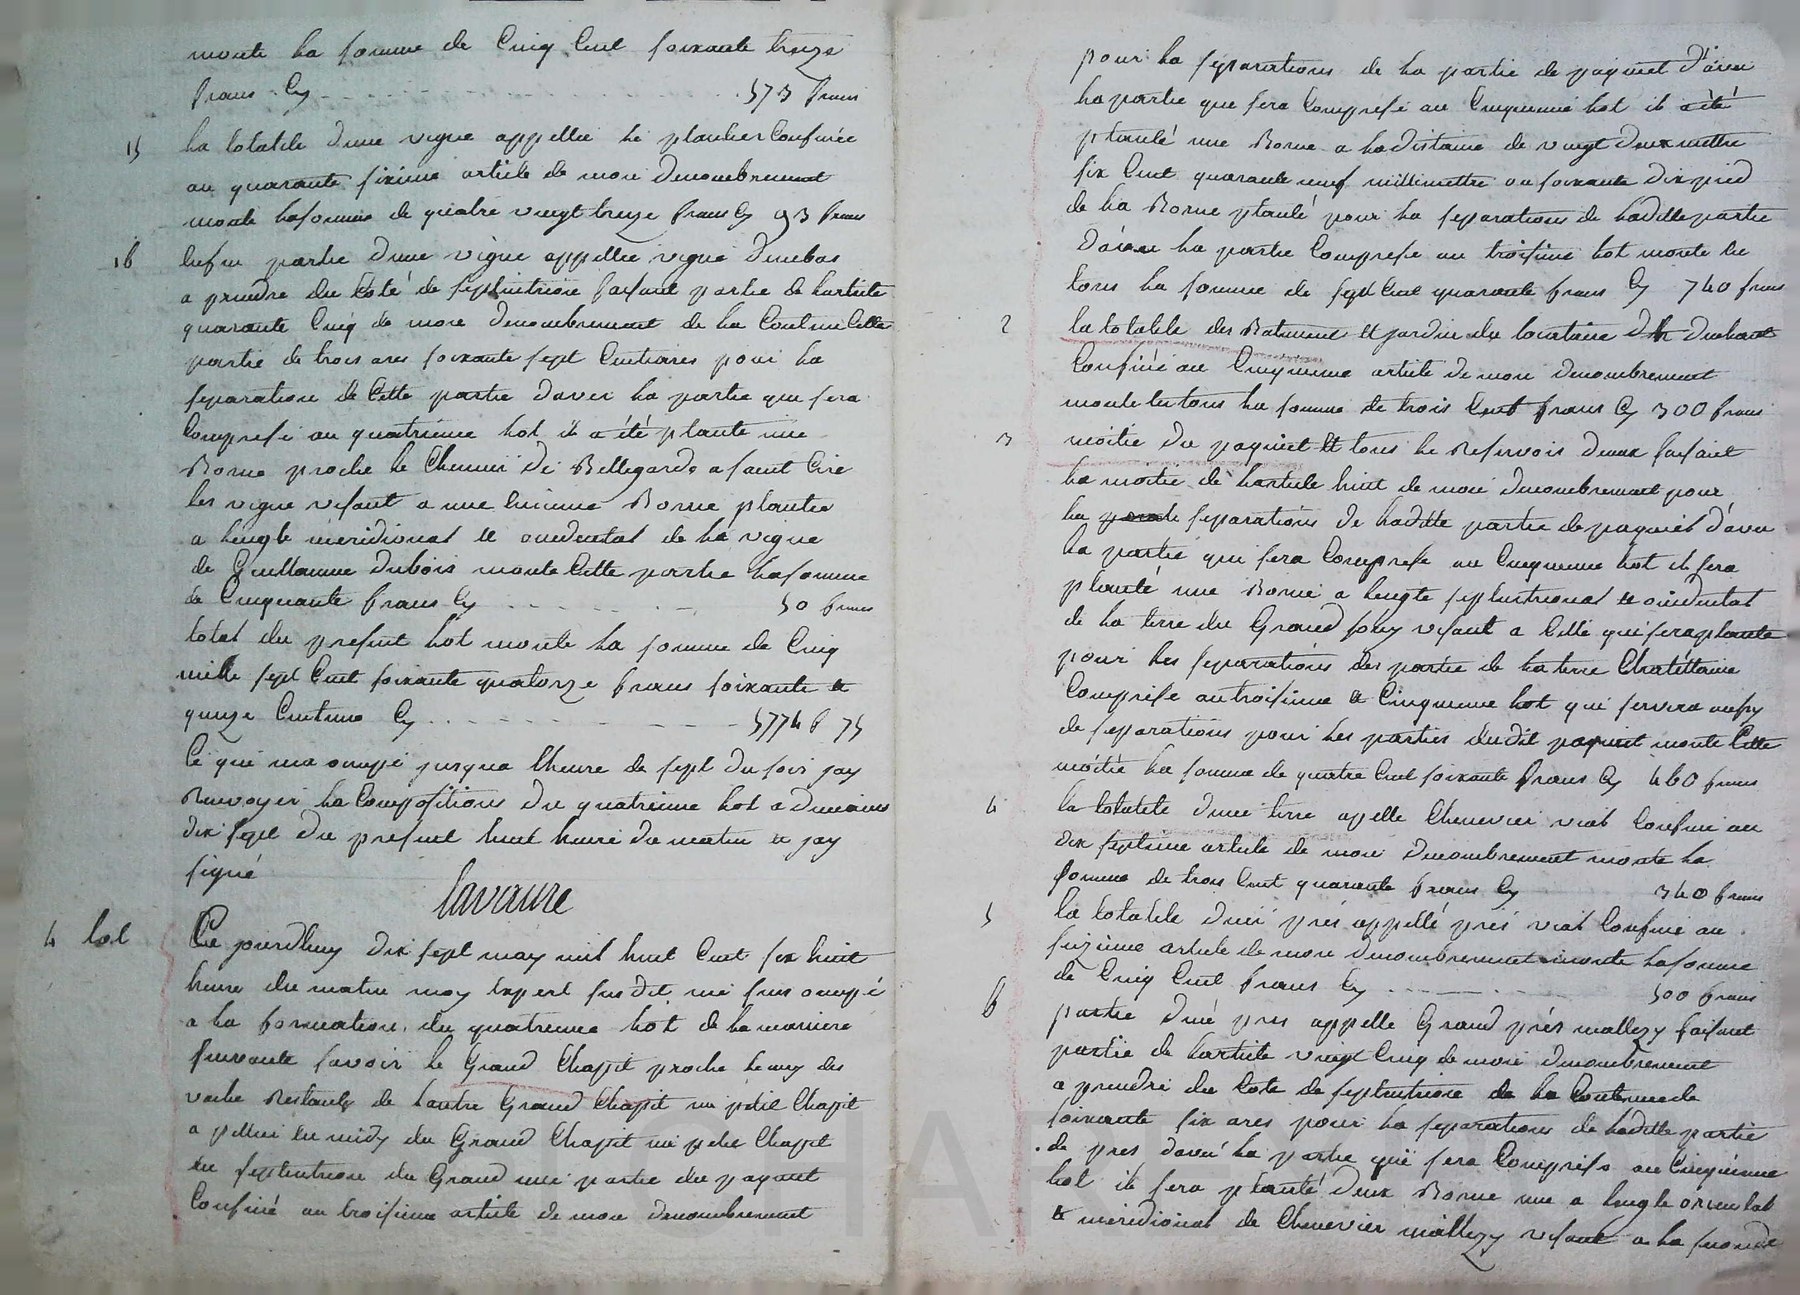 monte la somme de Cinq Cent soixante treize
francs Cy 573 francs
15 la totalité d'une vigne appellée le plantier Confinée
au quarante sixième article de mon Denombrement
monte la somme de quatre vingt treize francs Cy 93 francs
16 Enfin partie d'une vigne appellée vigne Dumbas
a prendre du Coté de septentrion faisant partie de l'article
quarante Cinq de mon denombrement de la Contenue Cette
partie de trois ares soixante sept Centiares pour la
separation de Cette partie d'avec la partie que sera
Comprise au quatrieme lot il a été planté une
Borne proche le Chemin de Bellegarde a saint Cire
les vigne visant a une encienne Borne plantée
a l'engle meridional et occidental de la vigne
de Guillaume Dubois monte Cette partie la somme
de Cinquante francs Cy 50 francs
total du present lot monte la somme de Cinq
mille sept Cent soixante quatorze francs soixante et
quinze Centimes Cy 5774 f 75
Ce qui ma occupé jusqua l'heure de sept du soir jay
Renvoyer la Compositions du quatrieme lot a demains
dix sept du present huit heure du matin et jay
signé
Lavaure
4 Lot Ce jourdhuy dix sept may mil huit Cent six huit
heure du matin moy Expert susdit me suis occupé
a la formation du quatrieme lot de la maniere
suivante savoir le Grand Chapit proche le Cuy des
vache Restant de l'autre Grand Chapit un petit Chapit
a pillier en midy du Grand Chapit un petit Chapit
en septentrion du Grand une partie du paquit
Confiné au troisieme article de mon denombrement
pour la separations de la partie de paquit d'avec
la partie que sera Comprise au Cinquieme lot il a été
planté une Borne a la distance de vingt deux mettre
six Cent quarante neuf millimettre ou soixante dix pied
de la Borne planté pour la separations de laditte partie
d'avec la partie Comprise au troisieme lot monte en
tous la somme de sept Cent quarante francs Cy 740 francs
2 la totalité des Batiment et jardin du locataire du
Confiné au Cinquieme article de mon denombrement
monte en tous la somme de trois Cent francs Cy 300 francs
3 moitie du paquiet et tous le Reservois faisant
la moitie de l'article huit de mon denombrement pour
la separations de laditte partie de paquiet d'avec
la partie qui sera Comprise au Cinquieme lot il sera
planté une Borne a l'engle septentrional et occidental
de la terre du Grand visant a Celle qui sera plante
pour les separations des partie de la terre Chatellaine
Comprise au troisieme et Cinquieme lot qui servira aussy
de separations pour les parties dudit paquiet monte Cette
moitié la somme de quatre Cent soixante francs Cy 460 francs
4 la totalité d'une terre apellé Chenevier viat Confine au
dix septieme article de mon denombrement monte la
somme de trois Cent quarante francs Cy 340 francs
5 la totalité d'un prés appellé prés viat Confiné au
seizieme article de mon denombrement monte la somme
de Cinq Cent francs Cy 500 francs
6 partie d'une pres appelle Grand prés mallezy faisant
partie de l'article vingt Cinq de mon denombrement
a prendre du Cote de septentrion de la Contenue de
soixante six ares pour la separations de laditte partie
de pres d'avec la partie qui sera Comprise au Cinquieme
lot il sera planté deux Borne une a l'engle oriental
et meridional de Chenevier mallezy visant a la seconde